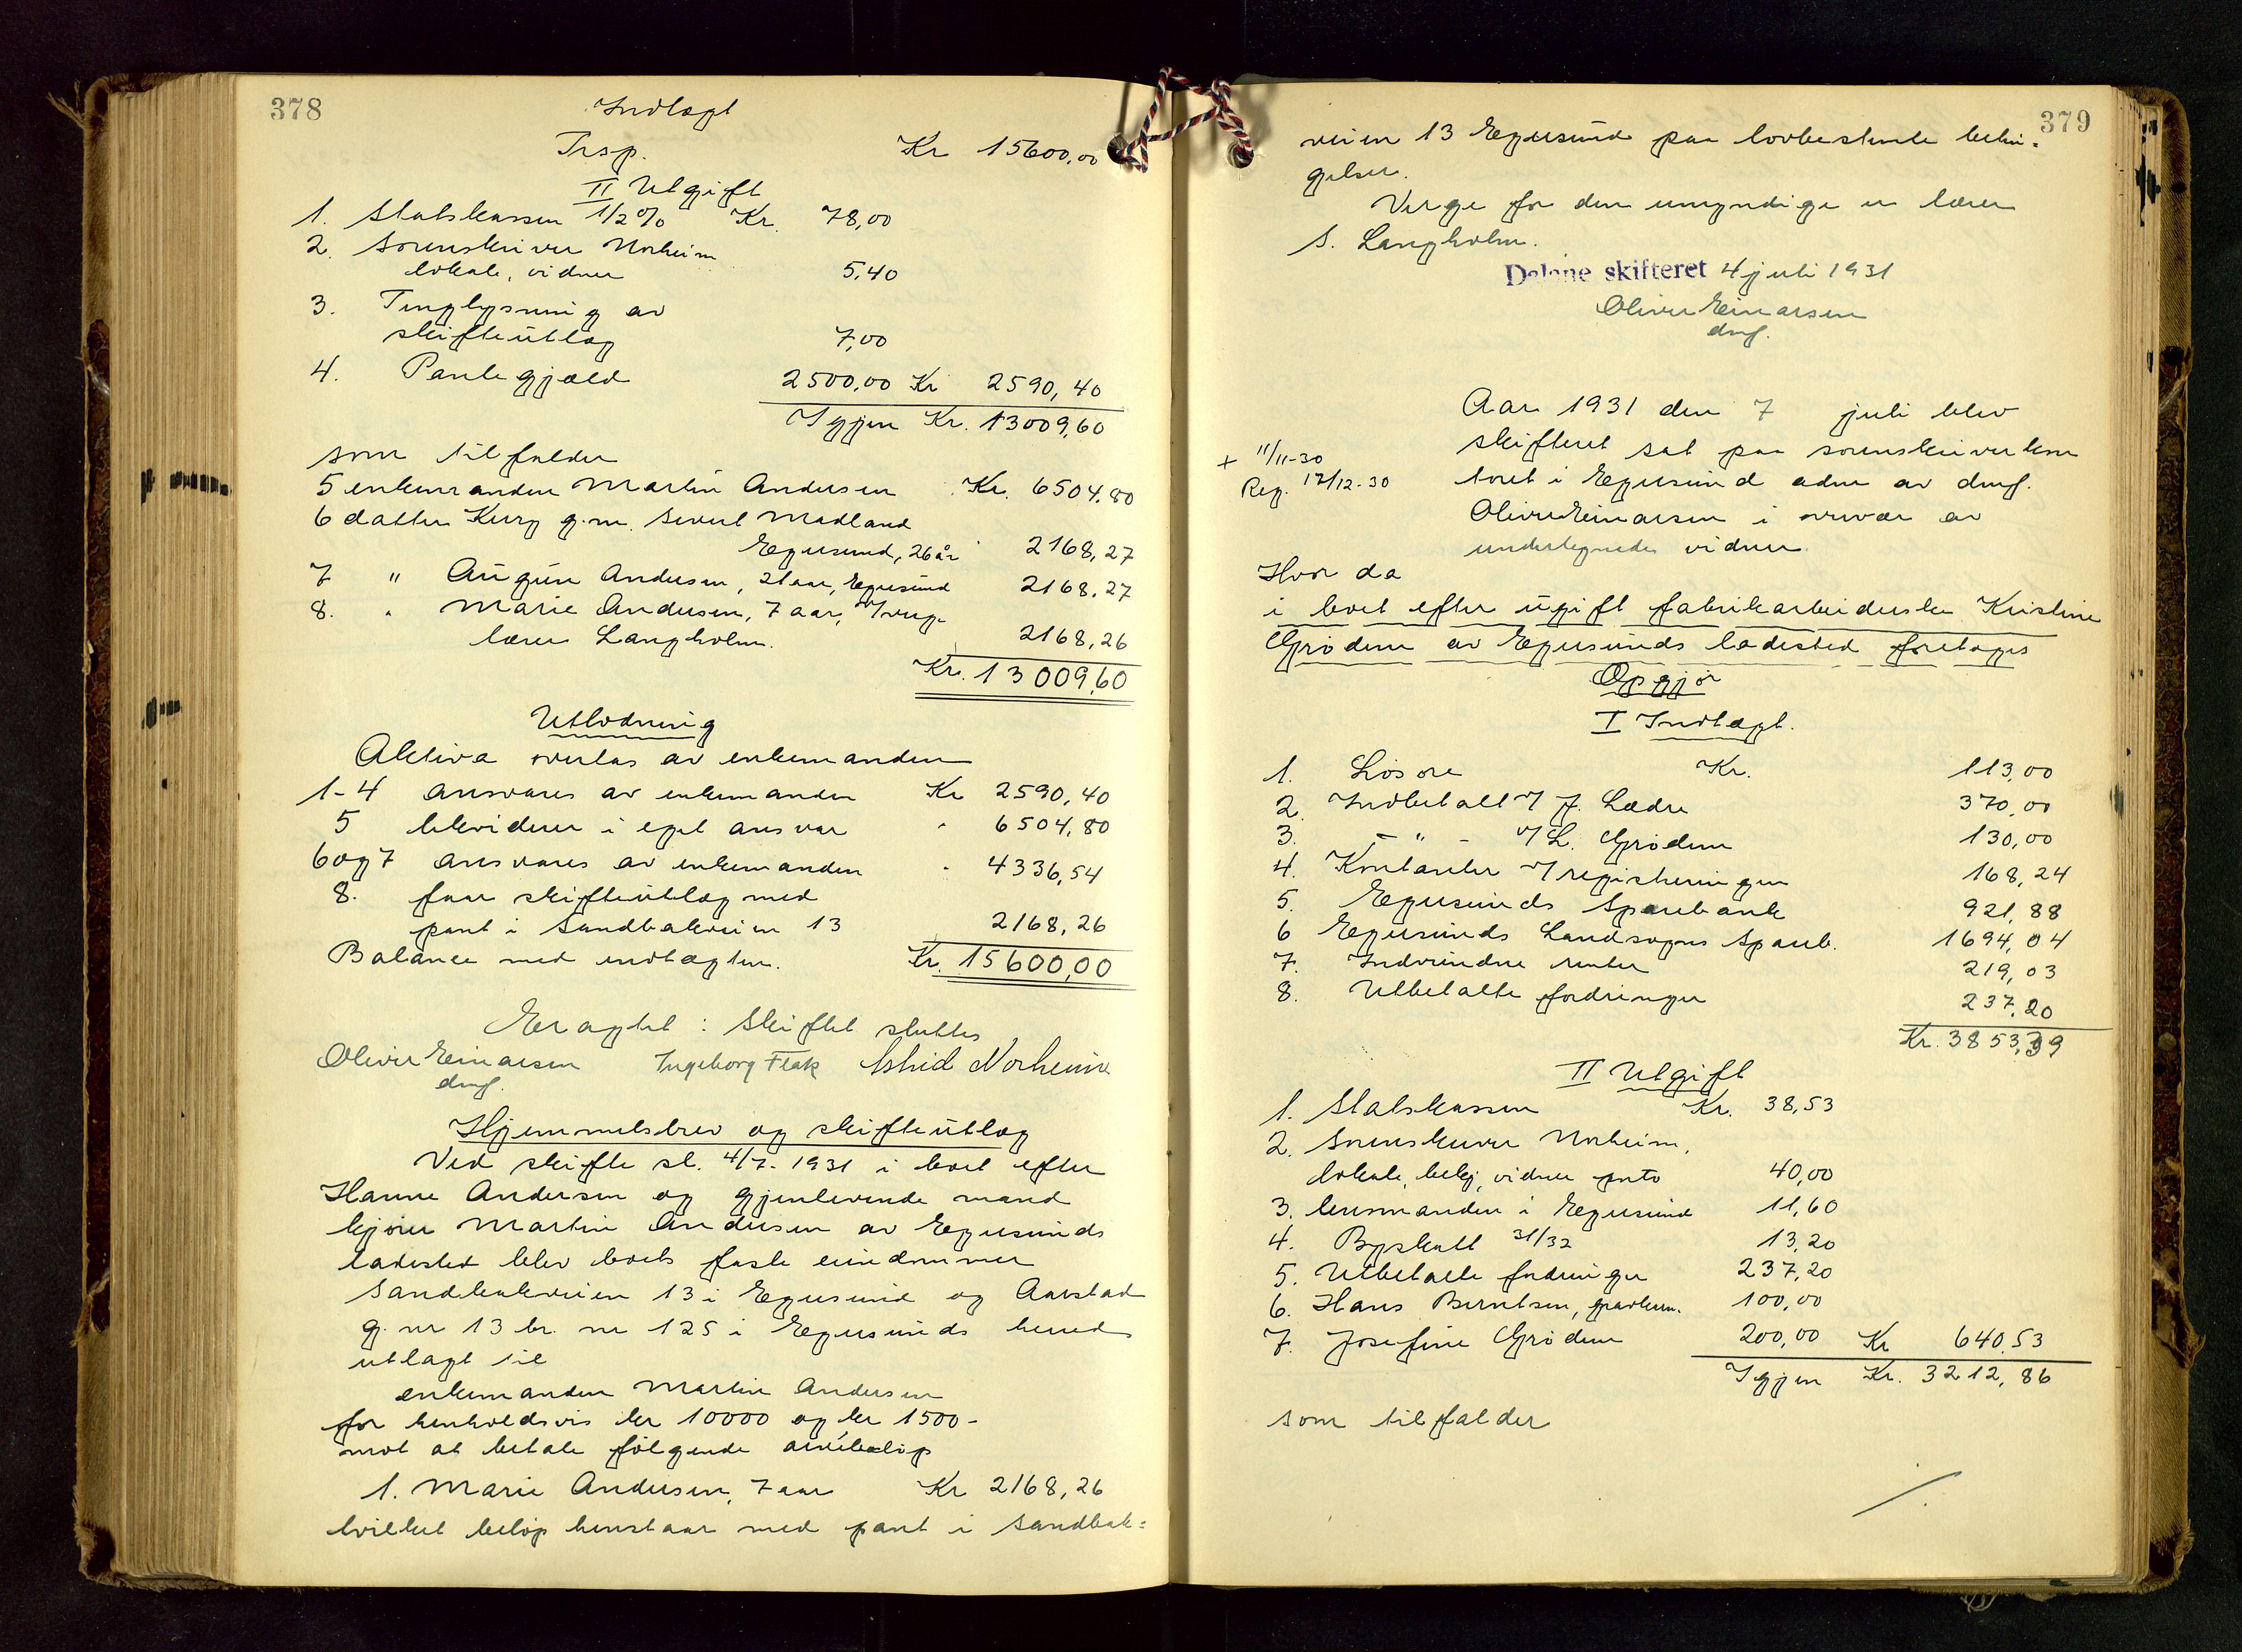 378
Indtægt
Trsp. Kr 15600,00
II Utgift
1. Statskassen 1/2 % Kr. 78,00
2. Sorenskriver Norheim
lokale, vidner 5,40
3. Tinglysning av
skifteutlæg 7,00
4. Pantegjæld 2500,00 Kr 2590,40
Igjen Kr. 13009,60
som tilfalder
5 enkemanden Martin Andersen Kr. 6504,80
6 datter g.m. Sivert Madland
Egersund, 26 år 2168,27
7 " Andersen, 21 aar, Egersund 2168,27
8. " Marie Andersen, 7 aar, v/verge
lærer Langholm. 2168,26
Kr. 13009,60
Utlodning
Aktiva overtas av enkemanden
1-4 ansvares av enkemanden Kr 2590,40
5 likviderer i eget ansvar " 6504,80
6 og 7 ansvares av enkemanden " 4336,54
8. faar skifteutlæg med
pant i Sandbakveien 13 2168,26
Balance med indtægten. Kr. 15600,00
Eragtet : Skiftet sluttes
Oliver Einarsen Ingeborg Flak Astrid Norheim
dmf.
Hjemmelsbrev og skifteutlæg
Ved skifte sl. 4/7-1931 i boet efter
Hanne Andersen og gjenlevende mand
kjører Martin Andersen av Egersunds
ladested blev boets faste eiendommer
Sandbakveien 13 i Egersund og Aarstad
g. nr 13 br. nr 125 i Egersunds herred
utlagt til
enkemanden Martin Andersen
for henholdsvis kr 10000 og kr 1500-
mot at betale følgende arvebeløp
1. Marie Andersen, 7 aar Kr 2168,26
hvilket beløp henstaar med pant i Sandbak=
379
veien 13 Egersund paa lovbestemte betin=
gelser.
Verge for den umyndige er lærer
S. Langholm.
Dalane skifteret 4 juli 1931
Oliver Einarsen
dmf.
Aar 1931 den 7 juli blev
skifteret sat paa sorenskriverkon
toret i Egersund adm av dmf.
Oliver Einarsen i nærvær av
undertegnede vidner.
+ 11/11-30
Reg. 17/12-30
Hvor da
i boet efter ugift fabrikarbeiderske Kristine
Grødem av Egersunds ladested foretages
Opgjør
I Indtægt.
1. Løsøre Kr. 113,00
2. Indbetalt v/ J. Lædre 370,00
3. - " - v/ L. Grødem 130,00
4. Kontanter v/ registreringen 168,24
5. Egersunds Sparebank 921,88
6 Egersunds Landsogns Spareb. 1694,04
7. Indvundne renter 219,03
8. Utbetalte fordringer 237,20
Kr. 3853,39
II Utgift
1. Statskassen Kr. 38,53
2. Sorenskriver Norheim,
lokale, bekj, vidner porto 40,00
3. lensmanden i Egersund 11,60
4. Byskatt 31/32 13,20
5. Utbetalte fordringer 237,20
6. Hans Berntsen, gravkum. 100,00
7. Josefine Grødem 200,00 Kr 640,53
Igjen Kr. 3212,86
som tilfalder
./.